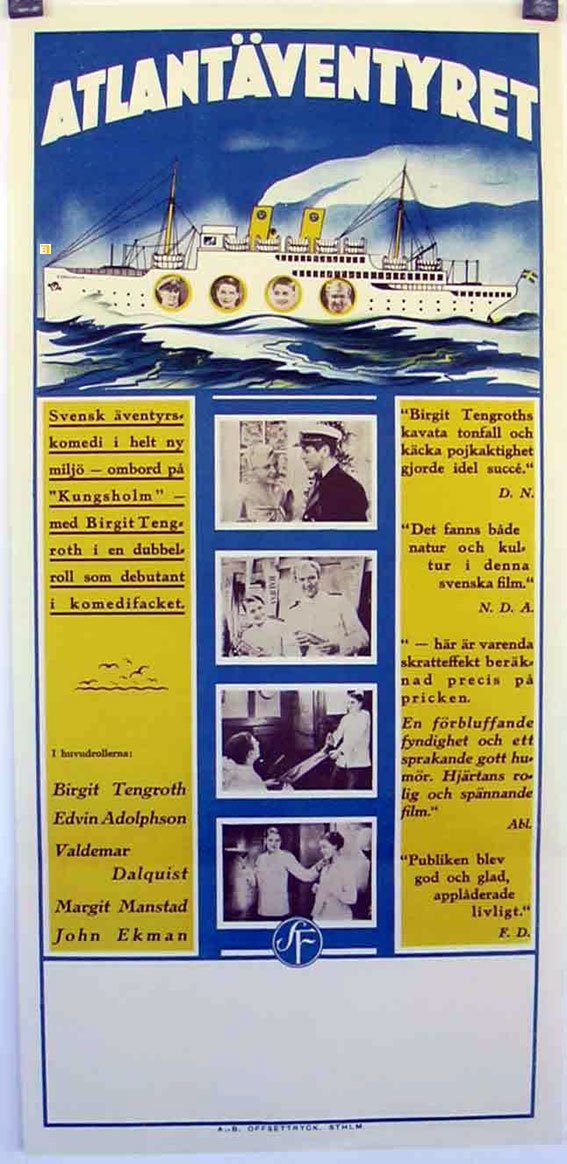 ATLANTÄVENTYRET
Svensk äventyrs-
komedi i helt ny
miljö — ombord på
"Kungsholm" —
med Birgit Teng-
roth i en dubbel-
roll som debutant
i komedifacket.
I huvudrollerna:
Birgit Tengroth
Edvin Adolphson
Valdemar
Dalquist
Margit Manstad
John Ekman
"Birgit Tengroths
kavata tonfall och
käcka pojkaktighet
gjorde idel succé."
D. N.
"Det fanns både
natur och kul-
tur i denna
svenska film."
N. D. A.
" — här är varenda
skratteffekt beräk-
nad precis på
pricken.
En förbluffande
fyndighet och ett
sprakande gott hu-
mör. Hjärtans ro-
lig och spännande
film."
Abl.
"Publiken blev
god och glad,
applåderade
livligt."
F. D.
SF
A.-B. OFFSETTRYCK, STHLM